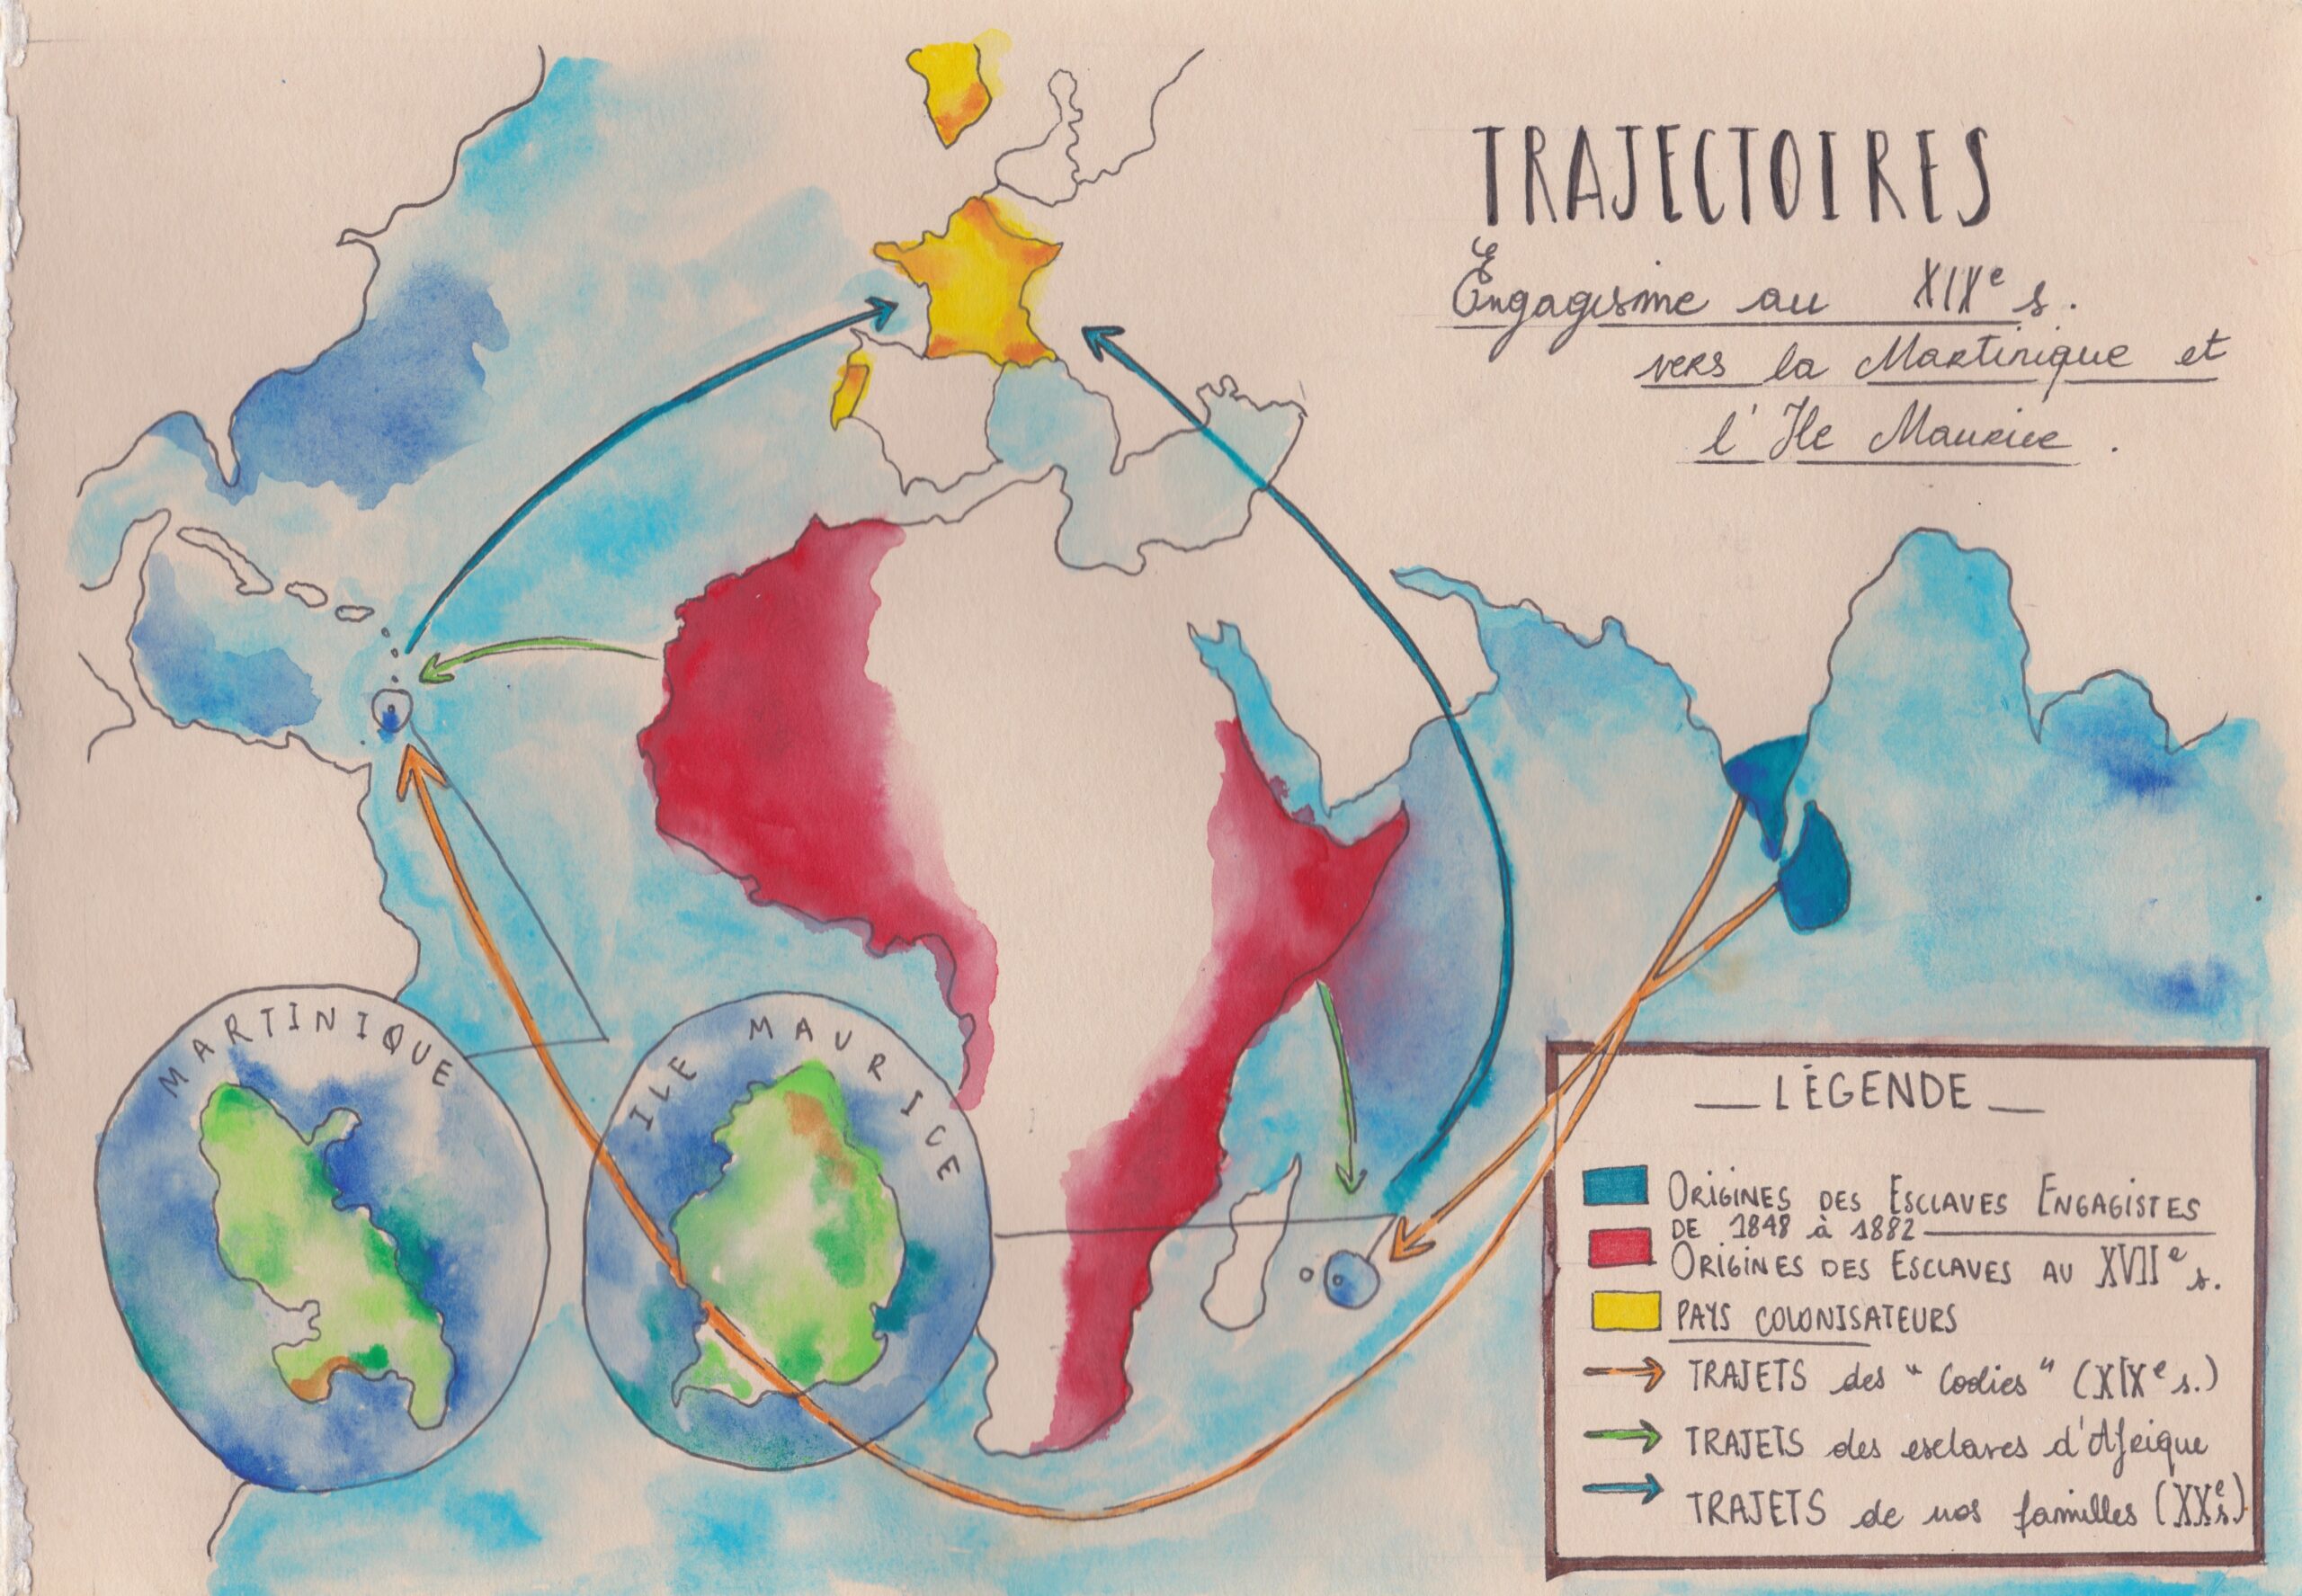 TRAJECTOIRES
Engagisme au XIXe s.
vers la Martinique et
l'Ile Maurice.
MARTINIQUE
ILE MAURICE
LÉGENDE
ORIGINES DES ESCLAVES ENGAGISTES
DE 1848 à 1882
ORIGINES DES ESCLAVES AU XVIIe s.
PAYS COLONISATEURS
TRAJETS des "Coolies" (XIXe s.)
TRAJETS des esclaves d'Afrique
TRAJETS de nos familles (XXe s)